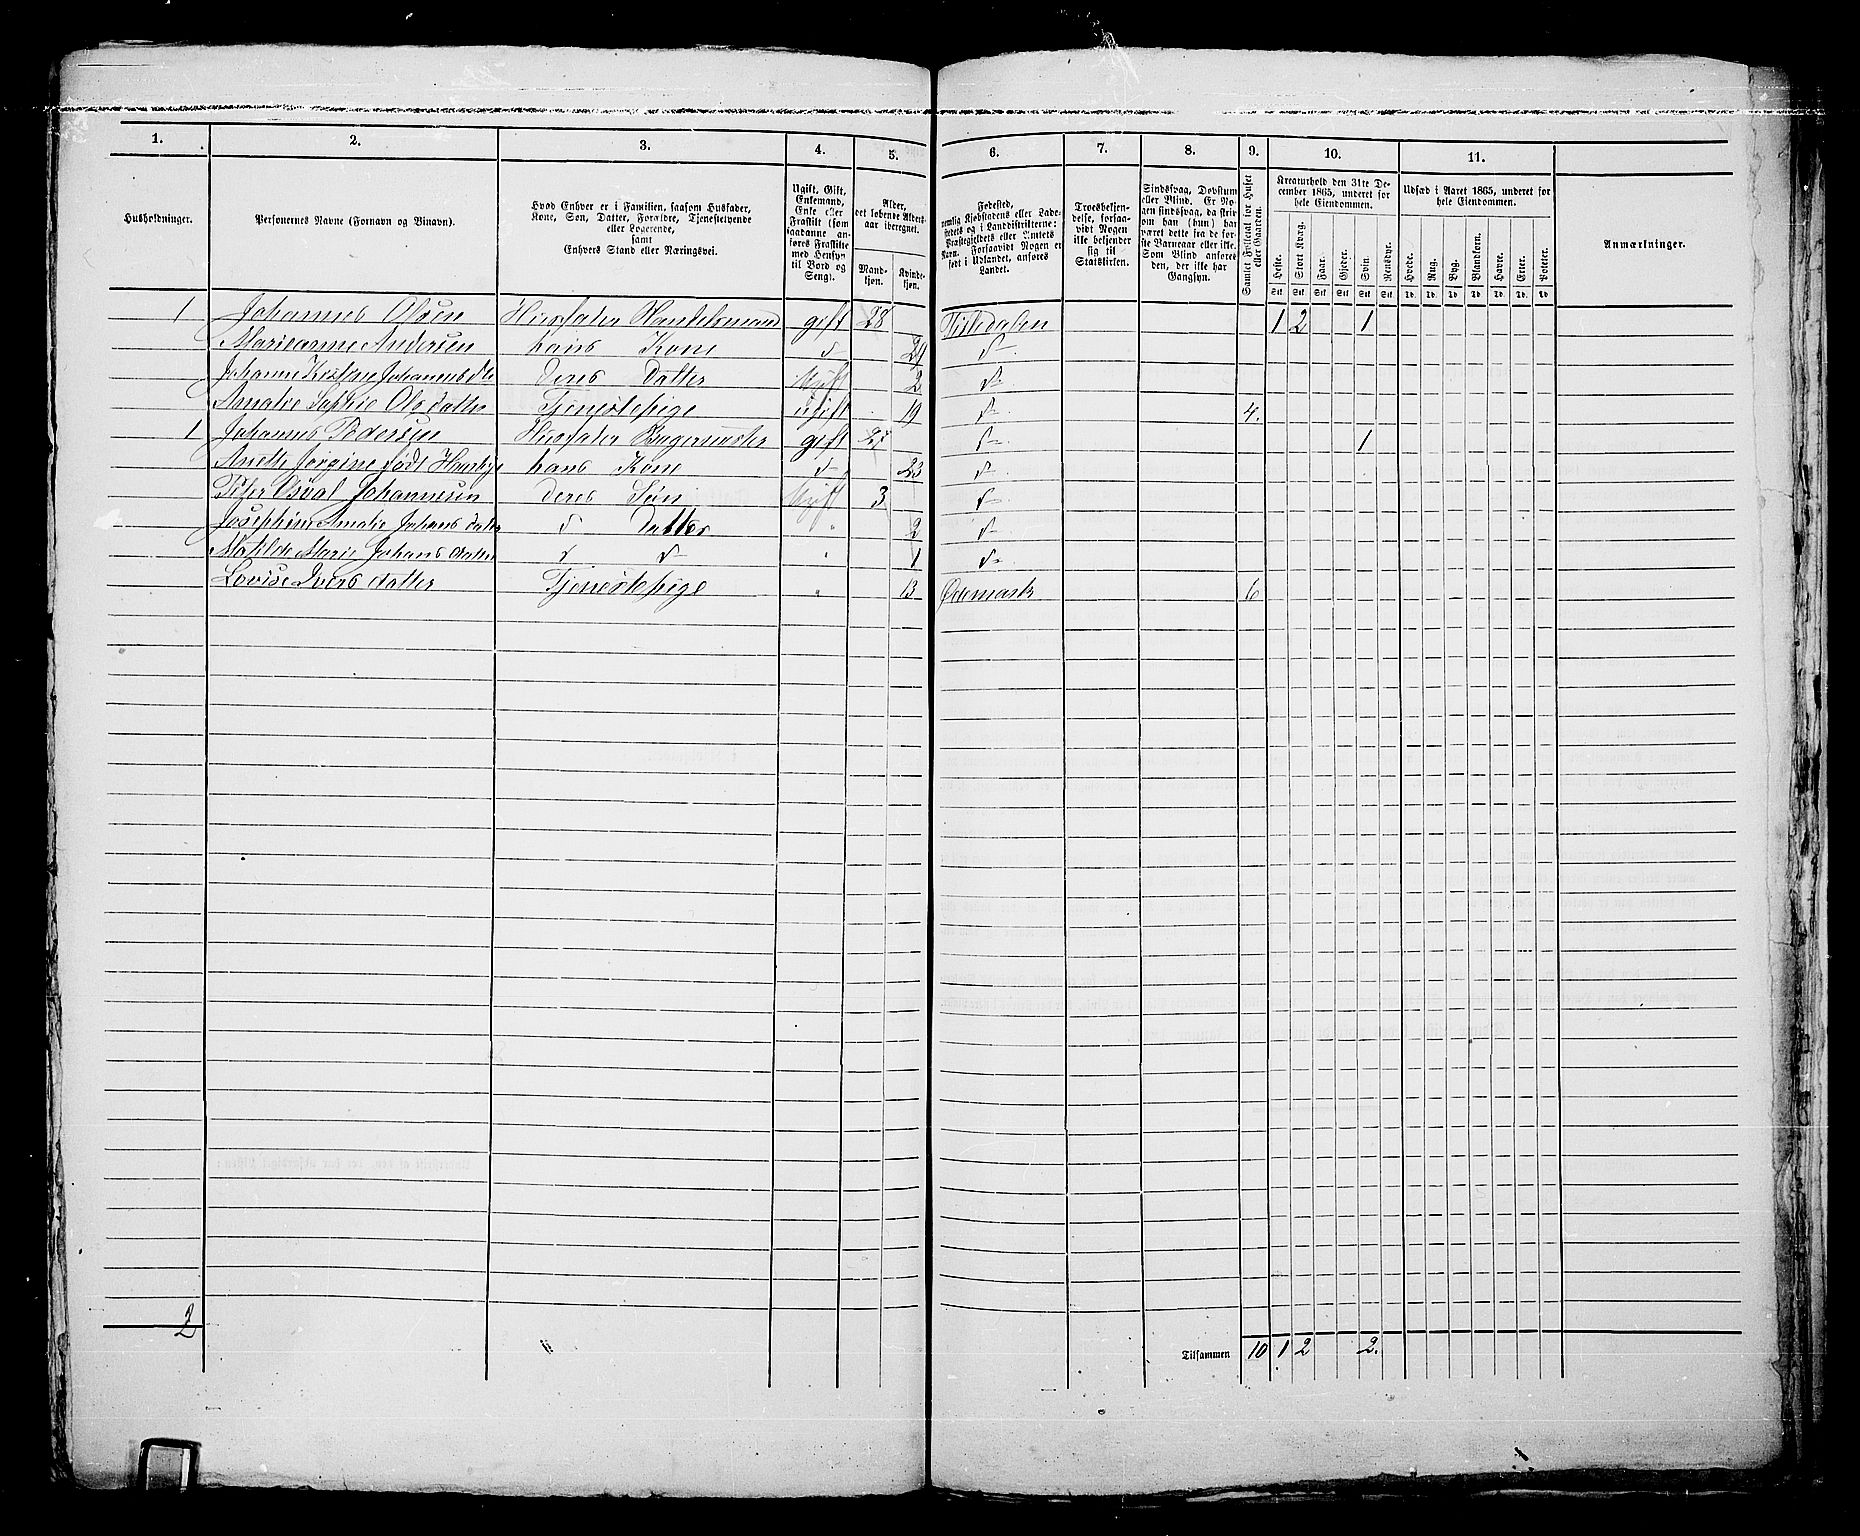 1. 2. 3. 4. 5. 6. 7. 8. 9. 10. 11.
Husholdninger.
Personernes Navne (Fornavn og Binavn).
Hvad Enhver er i Familien, saasom Husfader,
Kone, Søn, Datter, Forældre, Tjenestetyende
eller Logerende,
samt
Enhvers Stand eller Næringsvei.
Ugift, Gift,
Enkemand,
Enke eller
Fraskilt (som
saadanne an-
føres Fraskilte
med Hensyn
til Bord og
Seng).
Alder,
det løbende Alders-
aar iberegnet.
Mand-
kjøn.
Kvinde-
kjøn.
Fødested,
nemlig Kjøbstadens eller Lade-
stedets og i Landdistrikterne:
Præstegjeldets eller Amtets
Navn. Forsaavidt Nogen er
født i Udlandet, anføres
Landet.
Troesbekjen-
delse, forsaa-
vidt Nogen
ikke bekjender
sig til
Statskirken.
Sindssvag, Døvstum
eller Blind. Er No-
gen sindssvag, da skriv
om han (hun) har
været dette fra de før-
ste Barneaar eller ikke.
Som Blind anføres
den, der ikke har
Gangsyn.
Samlet Folketal for Huset
eller Gaarden.
Kreaturhold den 31te De-
cember 1865, underet for
hele Eiendommen.
Heste. Stort Kvæg. Faar. Gjeder. Svin. Rensdyr.
Stk Stk Stk Stk Stk Stk
Udsæd i Aaret 1865, underet for
hele Eiendommen.
Hvede. Rug. Byg. Blandkorn. Havre. Erter. Poteter.
Td. Td. Td Td Td Td. Td
Anmærkninger.
1 Johannes Olsen Husfader Handelsmand gift 28 Tistedalen 1 2 1
Marieanne Andersen hans Kone d 29 d
Johanne Johannesdtr deres Datter Ugift 2 d
Amalie Sophie Olsdatter Tjenestepige ugift 19 d 4.
1 Johannes Pedersen Husfader Bagermester gift d 1
Anette Jørgine født hans Kone d 23 d
Peter Osval Johannesen deres Søn Ugift 3 d
Josephine Amalie Johansdatter d Datter " 2 d
Matilde Marie Johansdatter d d " 1 d
Lovise Iversdatter Tjenestepige " 13 Ødemark 6
2
Tilsammen 10 1 2 2.